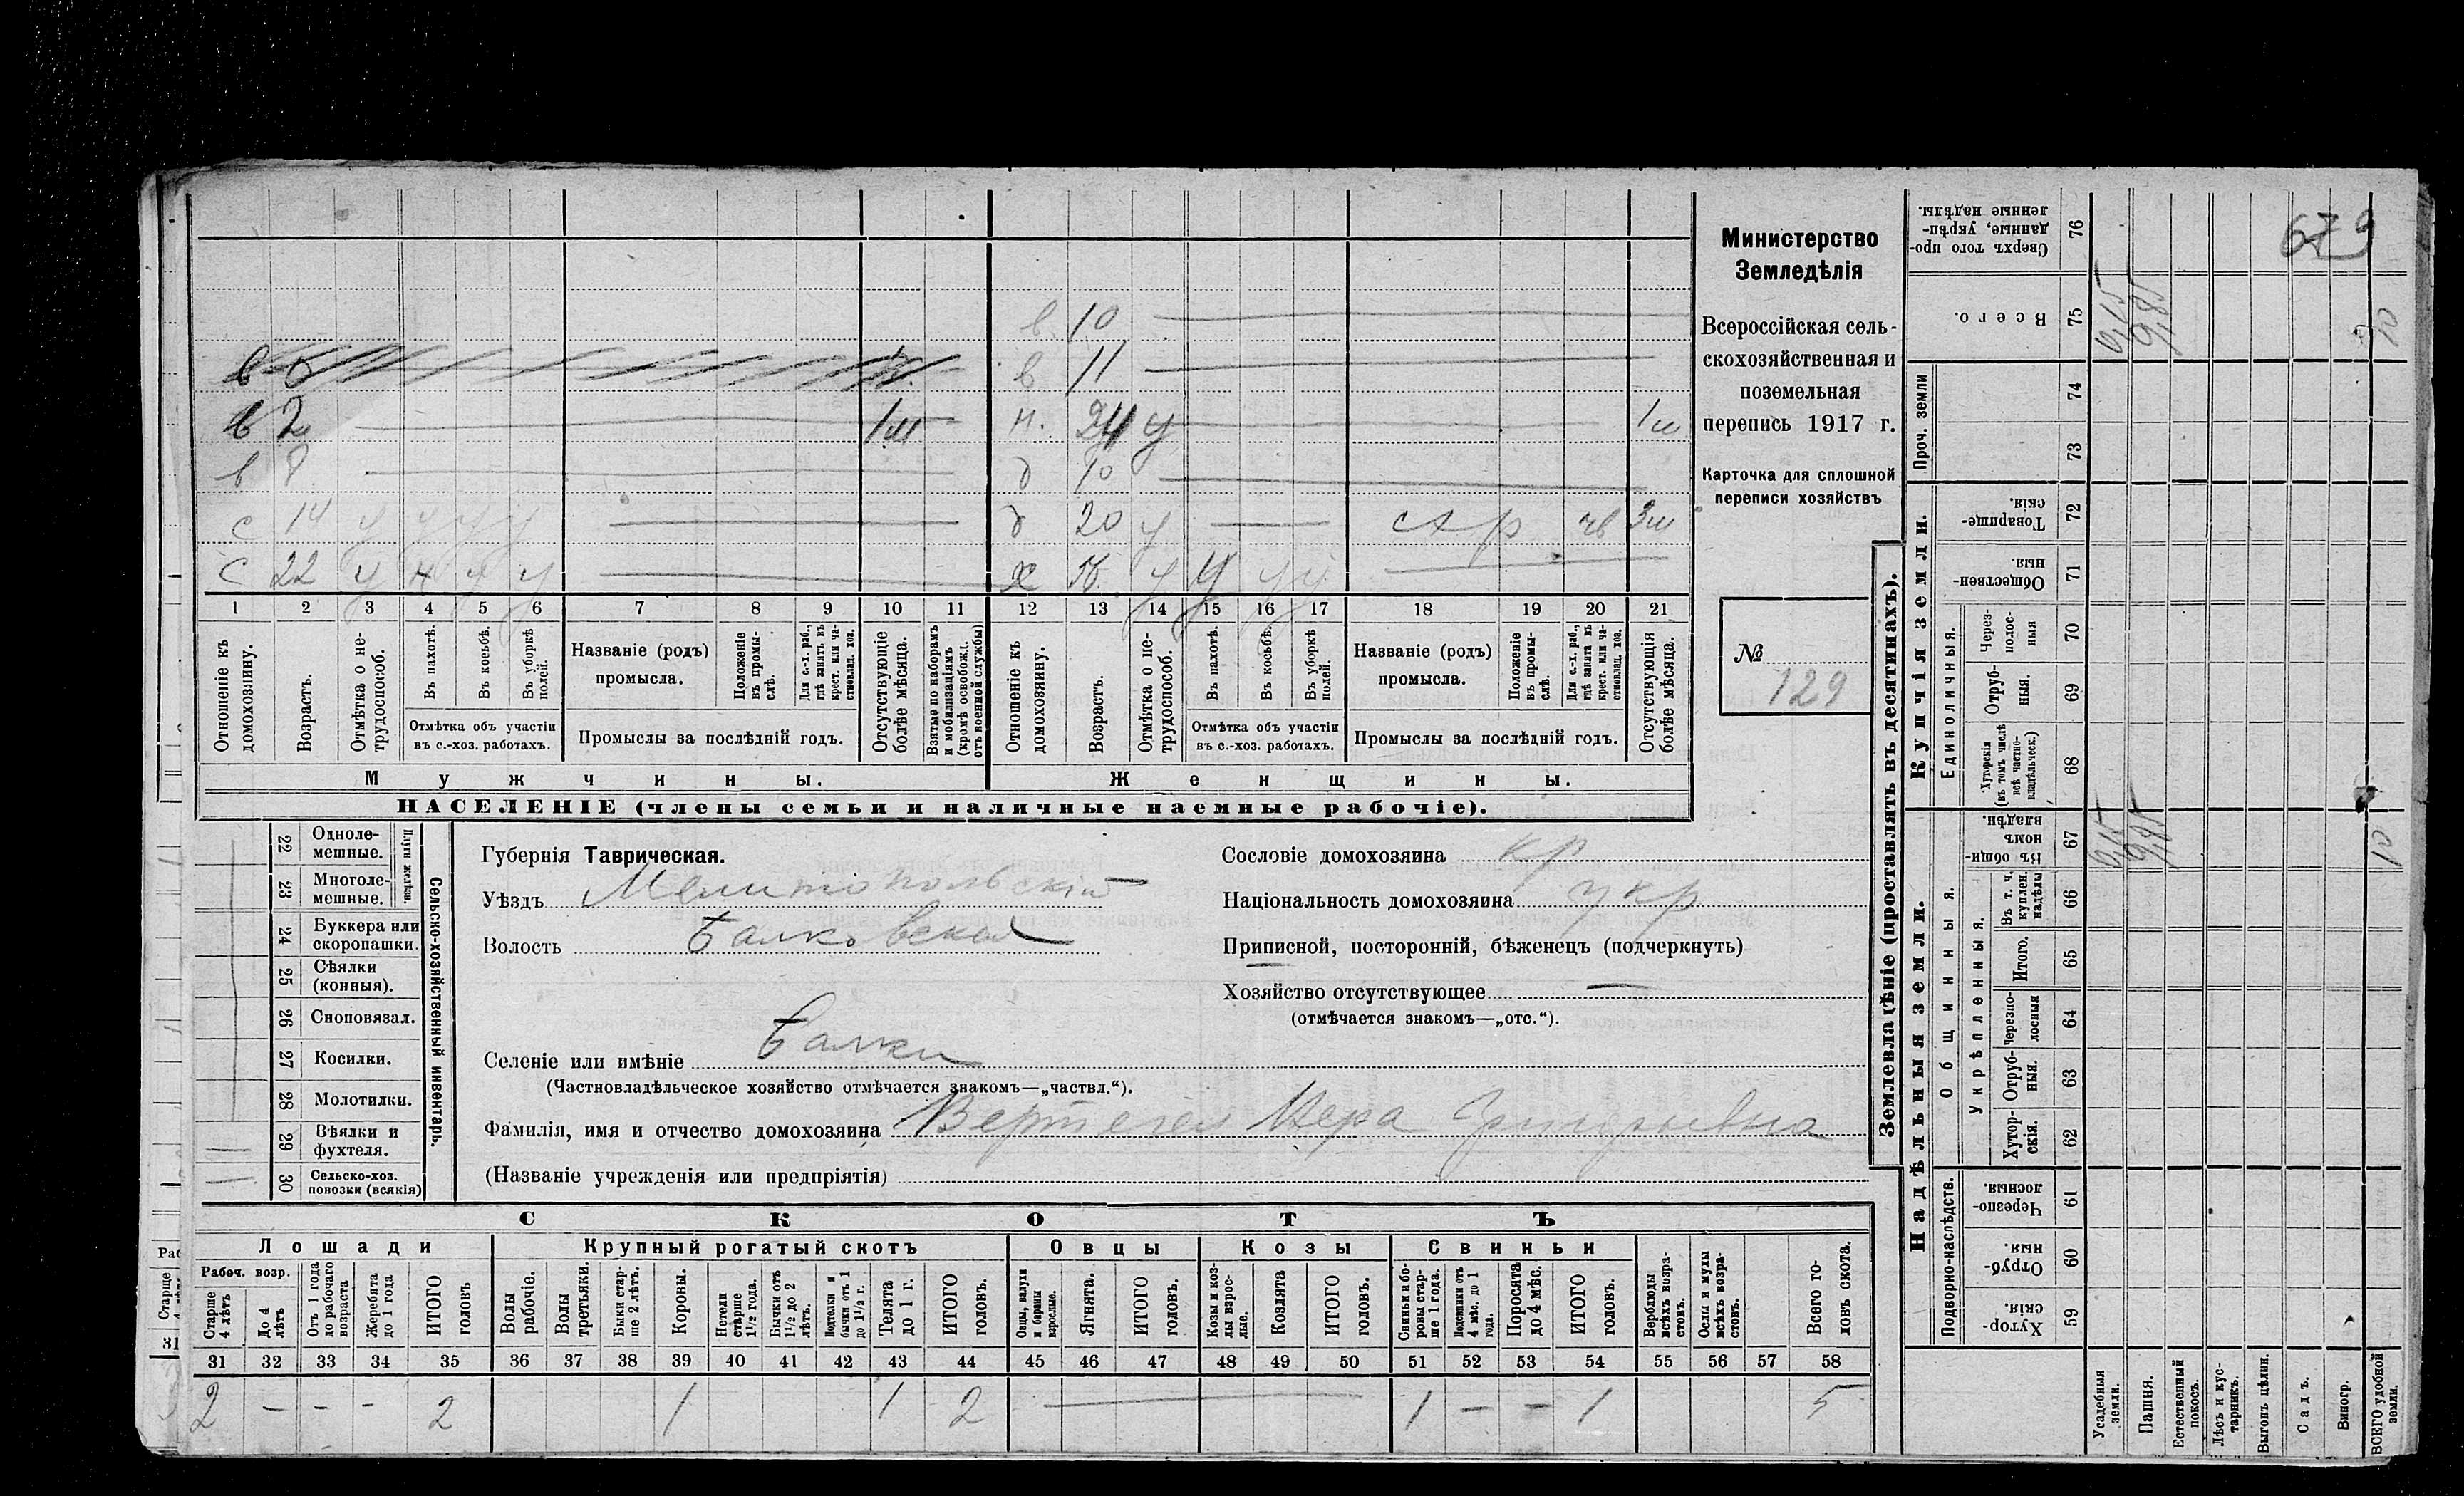 679
Министерство
Земледѣлія
Всероссійская сель-
скохозяйственная и
поземельная
перепись 1917 г.
Карточка для сплошной
переписи хозяйствъ
№
129
в. 10
в 11
в 2 1м
н. 24 у 1м
в 8
д 10
с 14 у у у у
д 20 у
с 22 у у у у
х у у у у
1 2 3 4 5 6 7 8 9 10 11 12 13 14 15 16 17 18 19 20 21
Отношеніе къ домохозяину.
Возрастъ.
Отмѣтка о не-трудоспособ.
Въ пахотѣ.
Въ косьбѣ.
Въ уборкѣ полей.
Отмѣтка объ участіи
въ с.-хоз. работахъ.
Названіе (родъ)
промысла.
Положеніе въ промы-слѣ.
Для с.-х. раб., гдѣ занятъ въ крест. или ча-стновлад. хоз.
Промыслы за послѣдній годъ.
Отсутствующіе болѣе мѣсяца.
Взятые по наборамъ и мобилизаціямъ (кромѣ освобожд. отъ военной службы)
Отношеніе къ домохозяину.
Возрастъ.
Отмѣтка о не-трудоспособ.
Въ пахотѣ.
Въ косьбѣ.
Въ уборкѣ полей.
Отмѣтка объ участіи
въ с.-хоз. работахъ.
Названіе (родъ)
промысла.
Положеніе въ промы-слѣ.
Для с.-х. раб., гдѣ занята въ крест. или ча-стновлад. хоз.
Промыслы за послѣдній годъ.
Отсутствующія болѣе мѣсяца.
Мужчины.
Женщины.
НАСЕЛЕНІЕ (члены семьи и наличные наемные рабочіе).
22 Одноле-мешные.
23 Многоле-мешные.
Плуги желѣзн.
24 Буккера или скоропашки.
25 Сѣялки (конныя).
26 Сноповязал.
27 Косилки.
28 Молотилки.
29 Вѣялки и фухтеля.
30 Сельско-хоз. повозки (всякія)
Сельско-хозяйственный инвентарь.
Губернія Таврическая.
Уѣздъ Мелитопольскій
Волость Балковская
Селеніе или имѣніе Балки
(Частновладѣльческое хозяйство отмѣчается знакомъ—„частвл.“).
Фамилія, имя и отчество домохозяина
(Названіе учрежденія или предпріятія)
Сословіе домохозяина кр
Національность домохозяина укр
Приписной, посторонній, бѣженецъ (подчеркнуть)
Хозяйство отсутствующее —
(отмѣчается знакомъ—„отс.“).
СКОТЪ
Лошади
Крупный рогатый скотъ
Овцы
Козы
Свиньи
Рабоч. возр.
Старше 4 лѣтъ
До 4 лѣтъ
Отъ 1 года до рабочаго возраста
Жеребята до 1 года
ИТОГО головъ
Волы рабочіе.
Волы третьяки.
Быки стар-ше 2 лѣтъ.
Коровы.
Нетели старше 1½ года.
Бычки отъ 1½ до 2 лѣтъ.
Подтелки и бычки отъ 1 до 1½ г.
Телята до 1 г.
ИТОГО головъ.
Овцы, валухи и бараны взрослые.
Ягнята.
ИТОГО головъ.
Козы и коз-лы взрос-лые.
Козлята
ИТОГО головъ.
Свиньи и бо-ровы стар-ше 1 года.
Подсвинки отъ 4 мѣс. до 1 года.
Поросята до 4 мѣс.
ИТОГО головъ.
Верблюды всѣхъ возра-стовъ.
Ослы и мулы всѣхъ возра-стовъ.
Всего го-ловъ скота.
31 32 33 34 35 36 37 38 39 40 41 42 43 44 45 46 47 48 49 50 51 52 53 54 55 56 57 58
2 – – – 2 1 1 2 1 – – 1 5
Землевладѣніе (проставлять въ десятинахъ).
Надѣльныя земли.
Купчія земли.
Проч. земли
Подворно-наслѣдств.
Общинныя.
Укрѣпленныя.
Единоличныя.
Хутор-скія. 59
Отруб-ныя. 60
Черезпо-лосныя. 61
Хутор-скія. 62
Отруб-ныя. 63
Черезпо-лосныя 64
Итого. 65
Въ т. ч. куплен. надѣлы 66
Въ общи-номъ владѣн. 67
Хуторскія (въ томъ числѣ всѣ частно-владѣльческ.) 68
Отруб-ныя. 69
Через-полос-ныя 70
Обществен-ныя. 71
Товарище-скія. 72
73
74
Всего. 75
Сверхъ того про-данные, укрѣп-ленные надѣлы. 76
Усадебныя земли.
Пашня.
Естественный покосъ.
Лѣсъ и кус-тарникъ.
Выгонъ цѣлин.
Садъ.
Виногр.
ВСЕГО удобной земли.
0,15
9,85
10
0,15
9,85
10